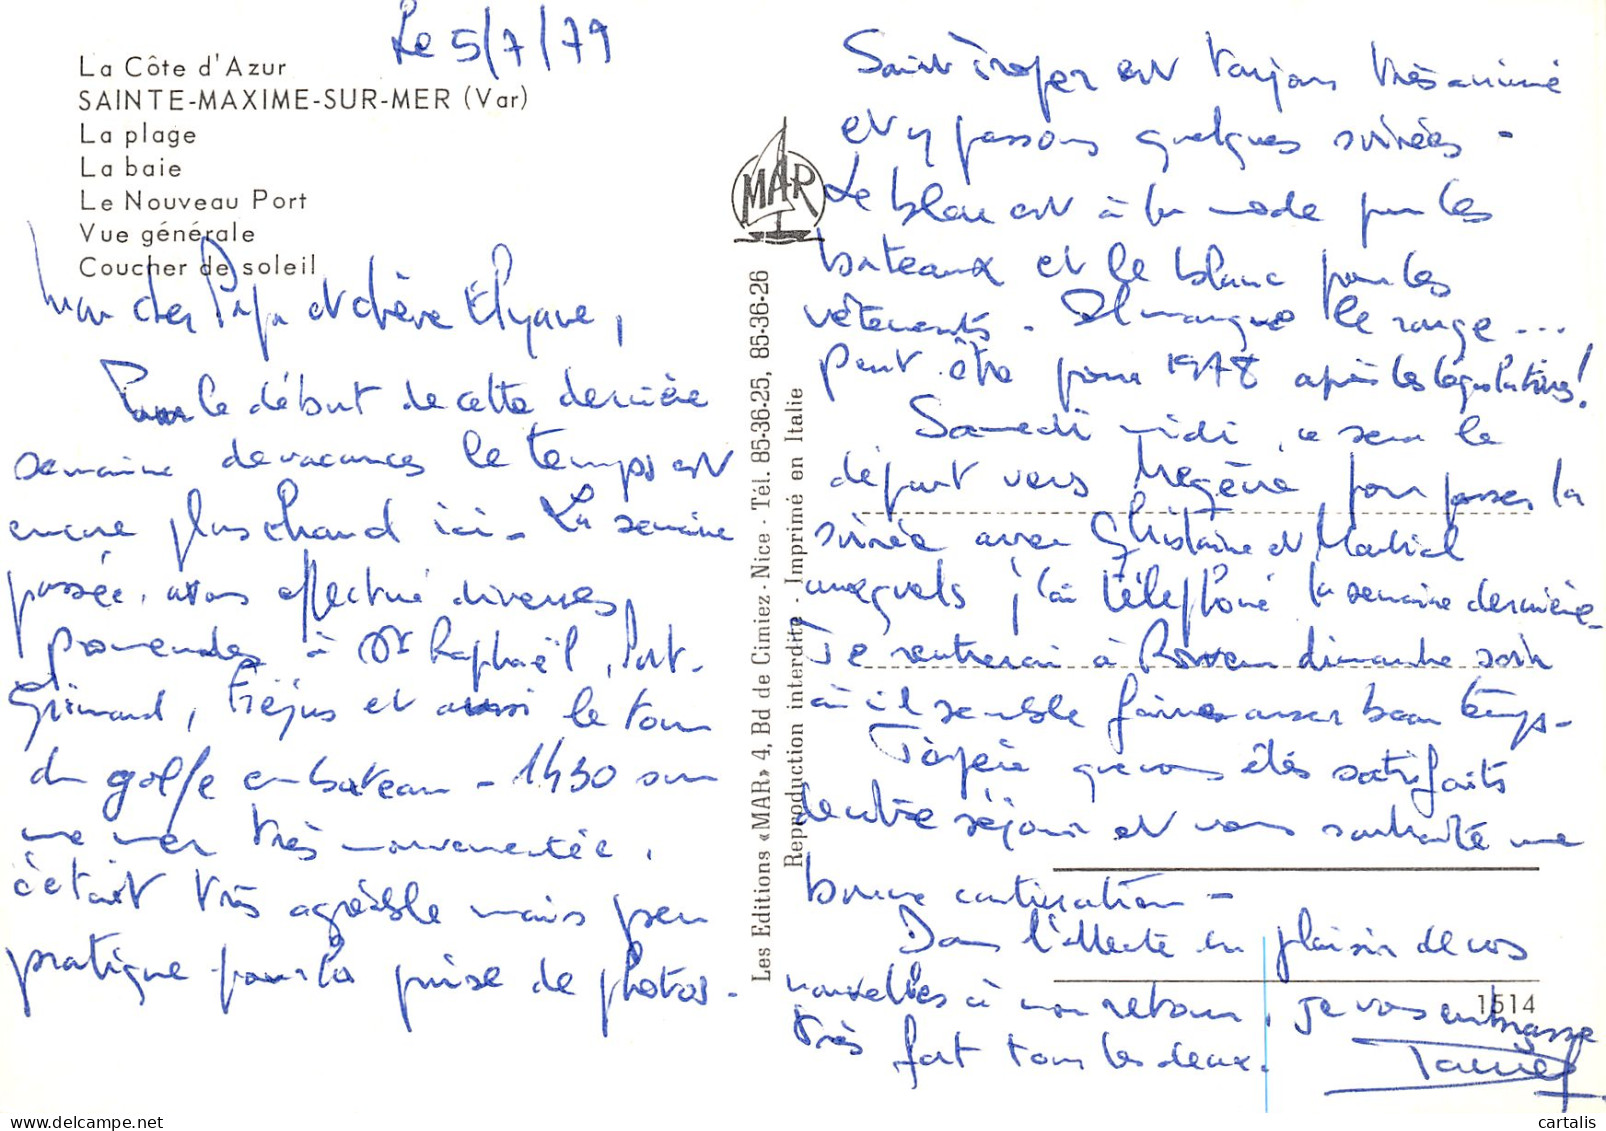 Le 5/7/79
La Côte d'Azur
SAINTE-MAXIME-SUR-MER (Var)
La plage
La baie
Le Nouveau Port
Vue générale
Coucher de soleil
Mon cher Papa et chère Elyane,
Pour le début de cette dernière
semaine de vacances le temps est
encore plus chaud ici - La semaine
passée, avons effectué diverses
promenades à St Raphaël, Port-
Grimaud, Fréjus et aussi le tour
du golfe en bateau - 1h30 sur
une mer très mouvementée,
c'était très agréable mais peu
pratique pour la prise de photos -
MAR
Les Editions «MAR» 4, Bd de Cimiez - Nice - Tél. 85-36-25, 85-36-26
Reproduction interdite - Imprimé en Italie
Saint Tropez est toujours très animé
et y passons quelques soirées -
Le bleu est à la mode pour les
bateaux et le blanc pour les
vêtements - Il manque le rouge ...
peut être pour 1978 après les législatives!
Samedi midi, ce sera le
départ vers Megève pour passer la
soirée avec Ghislaine et Martial
auxquels j'ai téléphoné la semaine dernière -
Je rentrerai à Rouen dimanche soir
où il semble faire assez beau temps -
J'espère que vous êtes satisfaits
de votre séjour et vous souhaite une
bonne continuation -
Dans l'attente en plaisir de vos
nouvelles à mon retour, je vous embrasse
très fort tous les deux.
1514
Daniel
cartalis